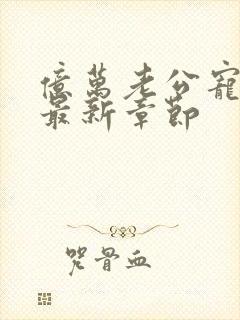 億萬老公寵
最新章節
咒骨血